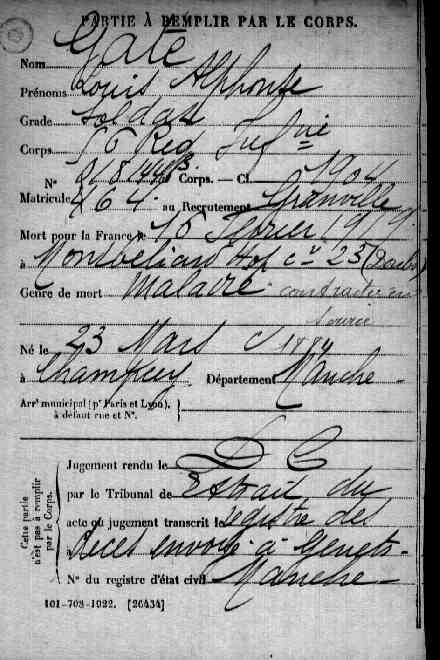 PARTIE À REMPLIR PAR LE CORPS.
Nom Gaté
Prénoms Louis Alphonse
Grade Soldat
Corps Reg Inf rie
N° Corps. — Cl. 1904
Matricule 464 au Recrutement Granville
Mort pour la France le 15 Février 1919
à Montbéliard Hop 23 (Doubs)
Genre de mort Maladie contractée en
service
Né le 23 Mars 1884
à Champcey Département Manche
Arrt municipal (pr Paris et Lyon),
à défaut rue et N°.
Cette partie
n'est pas à remplir
par le Corps.
Jugement rendu le D C
par le Tribunal de Extrait du
acte ou jugement transcrit le registre des
Décès envoyé à Genets
N° du registre d'état civil Manche
101-708-1922. [26434]